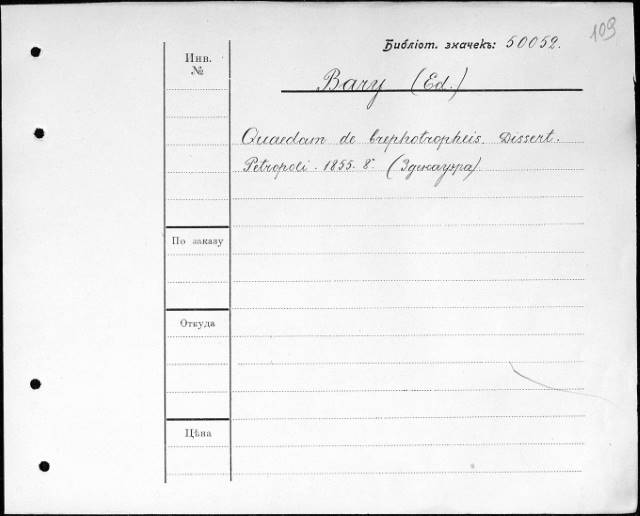 109
Библіот. значекъ: 50052.
Инв.
№
Bary (Ed.)
Quaedam de brephotropheis. Dissert.
Petropoli. 1855. 8°. (Здекауэра).
По заказу
Откуда
Цѣна